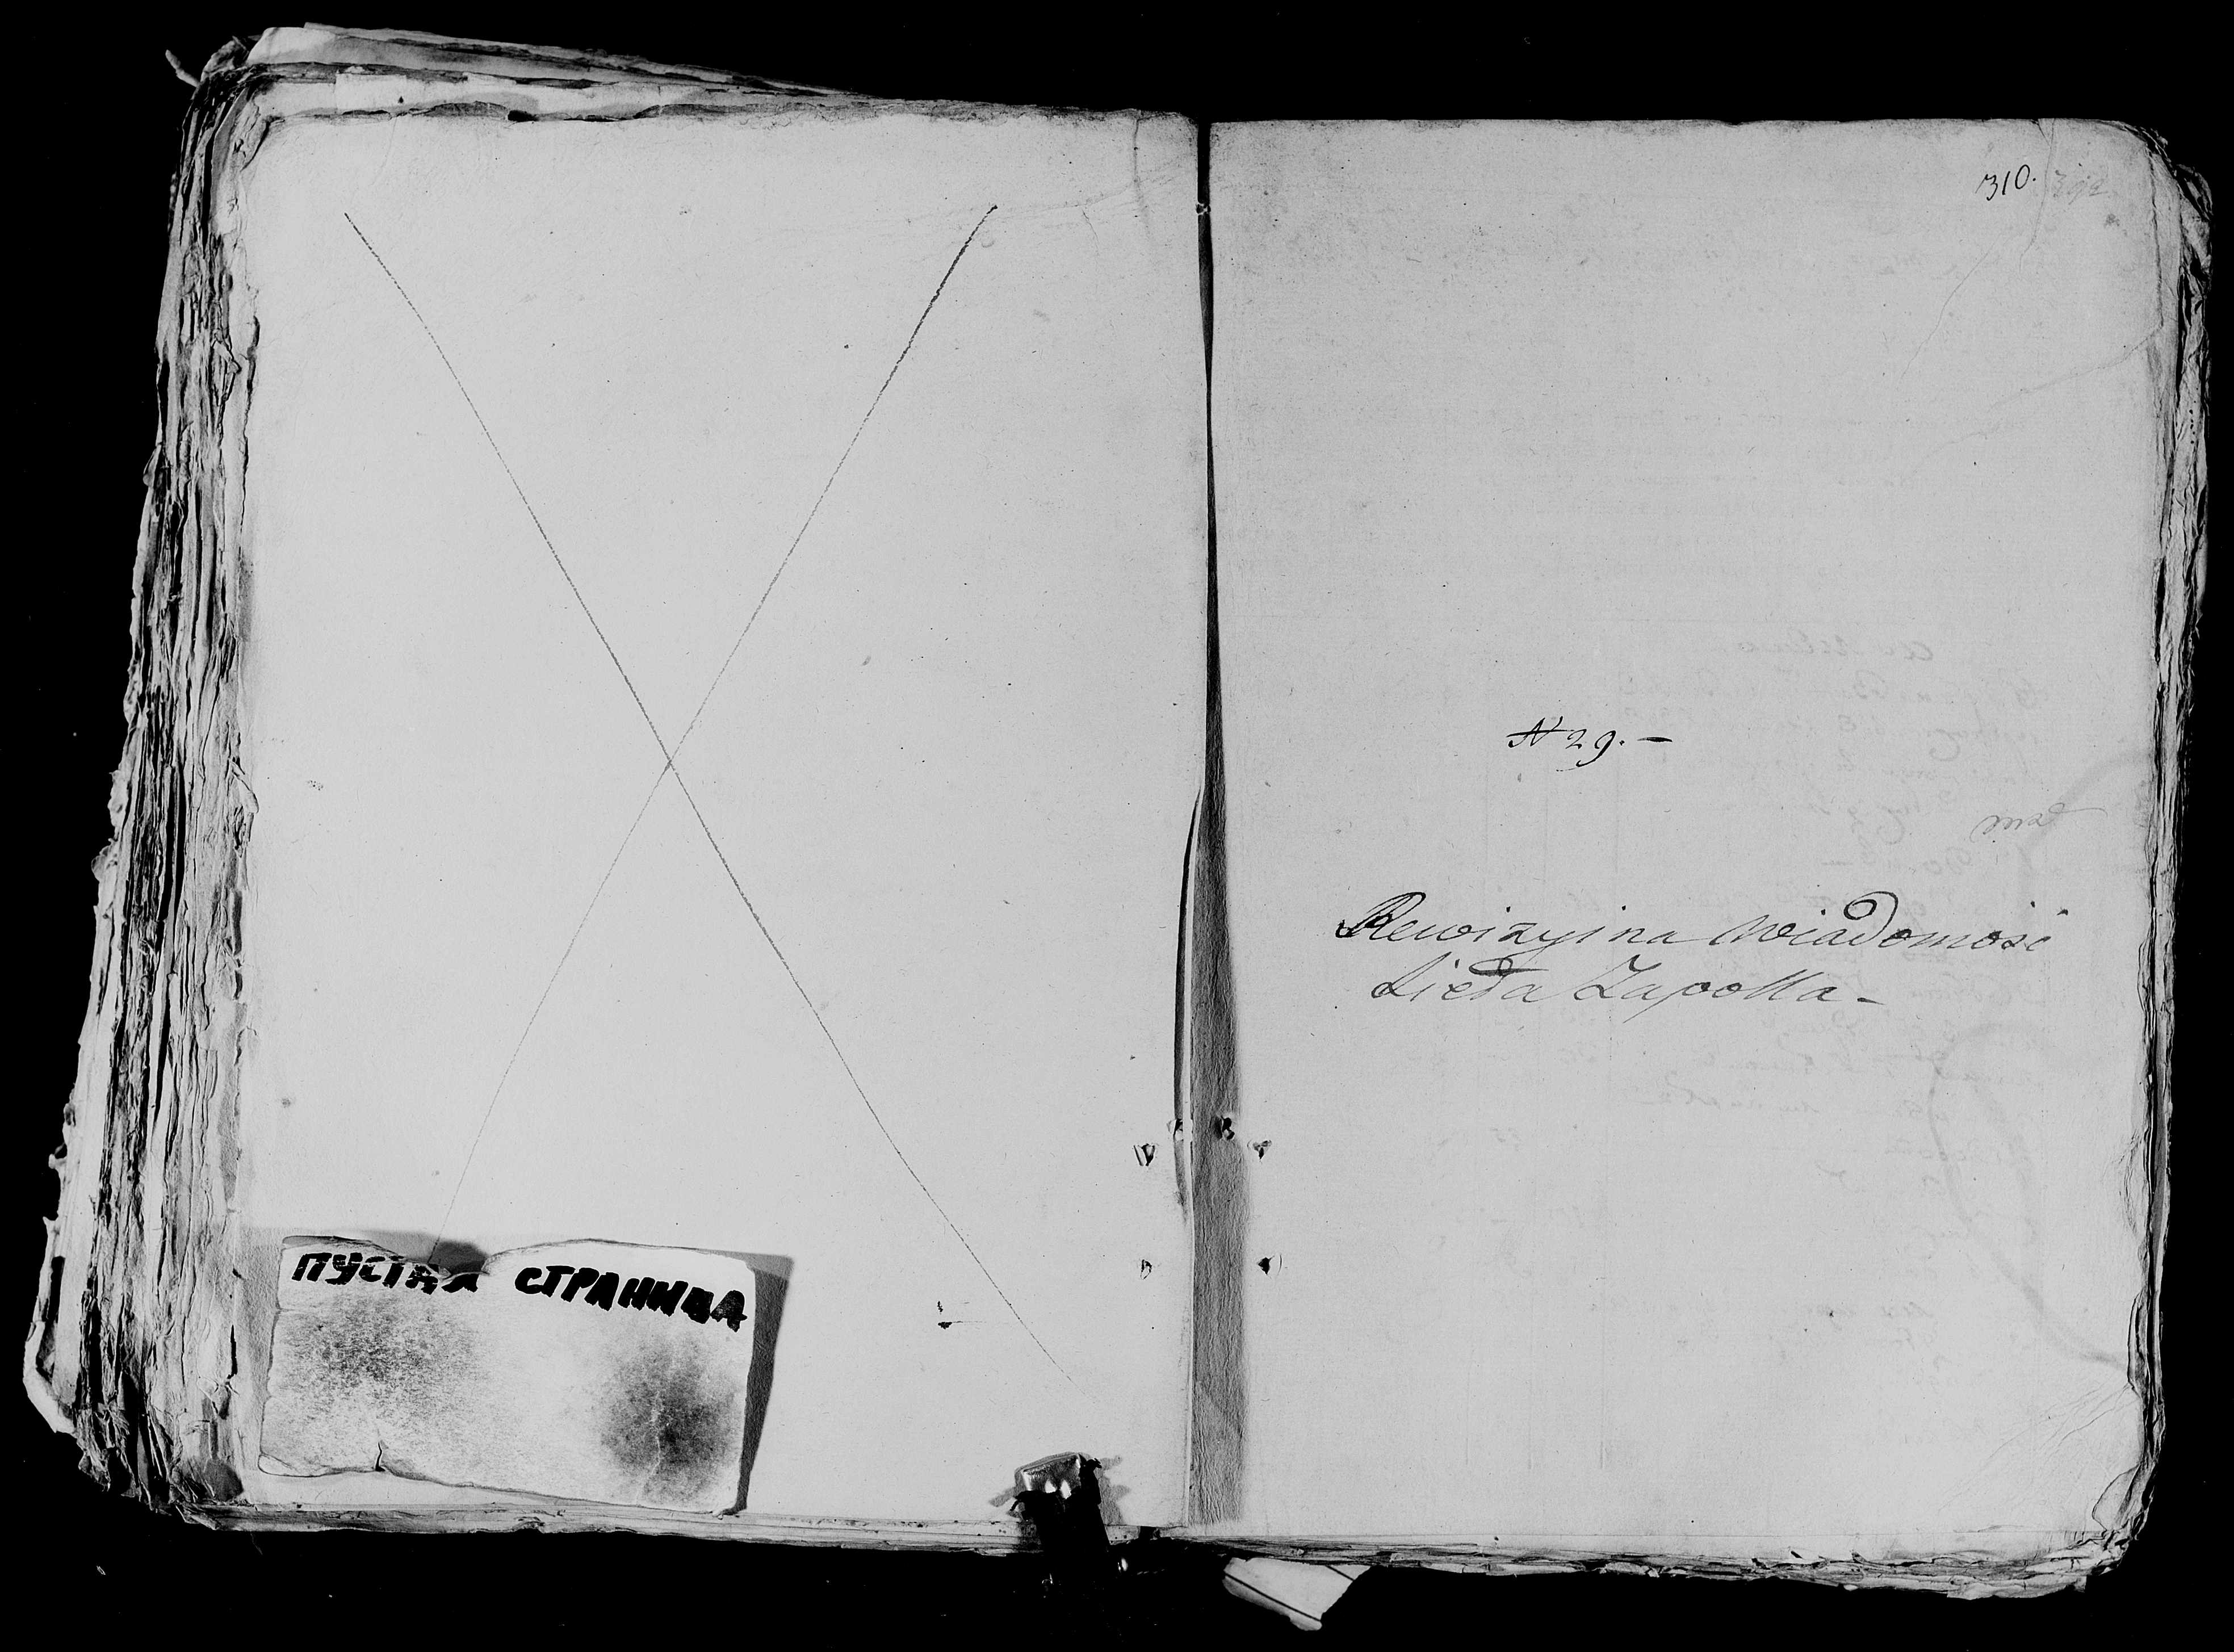 ПУСТАЯ СТРАНИЦА
310.
N 29. —
Rewizyina Wiadomość
Sioła Zapolla -